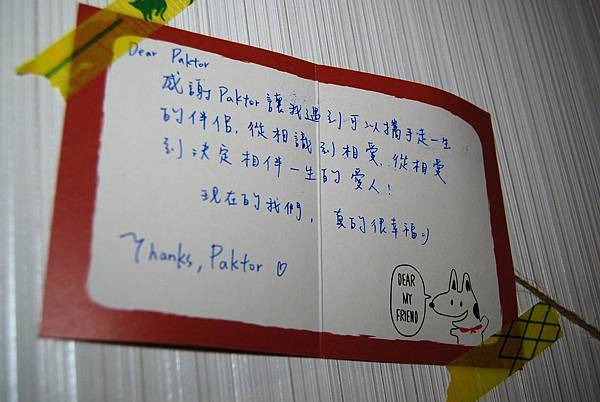 Dear Paktor
感謝Paktor讓我遇到可以攜手走一生
的伴侶,從相識到相愛,從相愛
到決定相伴一生的愛人!
現在的我們,真的很幸福:)
Thanks, Paktor ♡
DEAR
MY
FRIEND